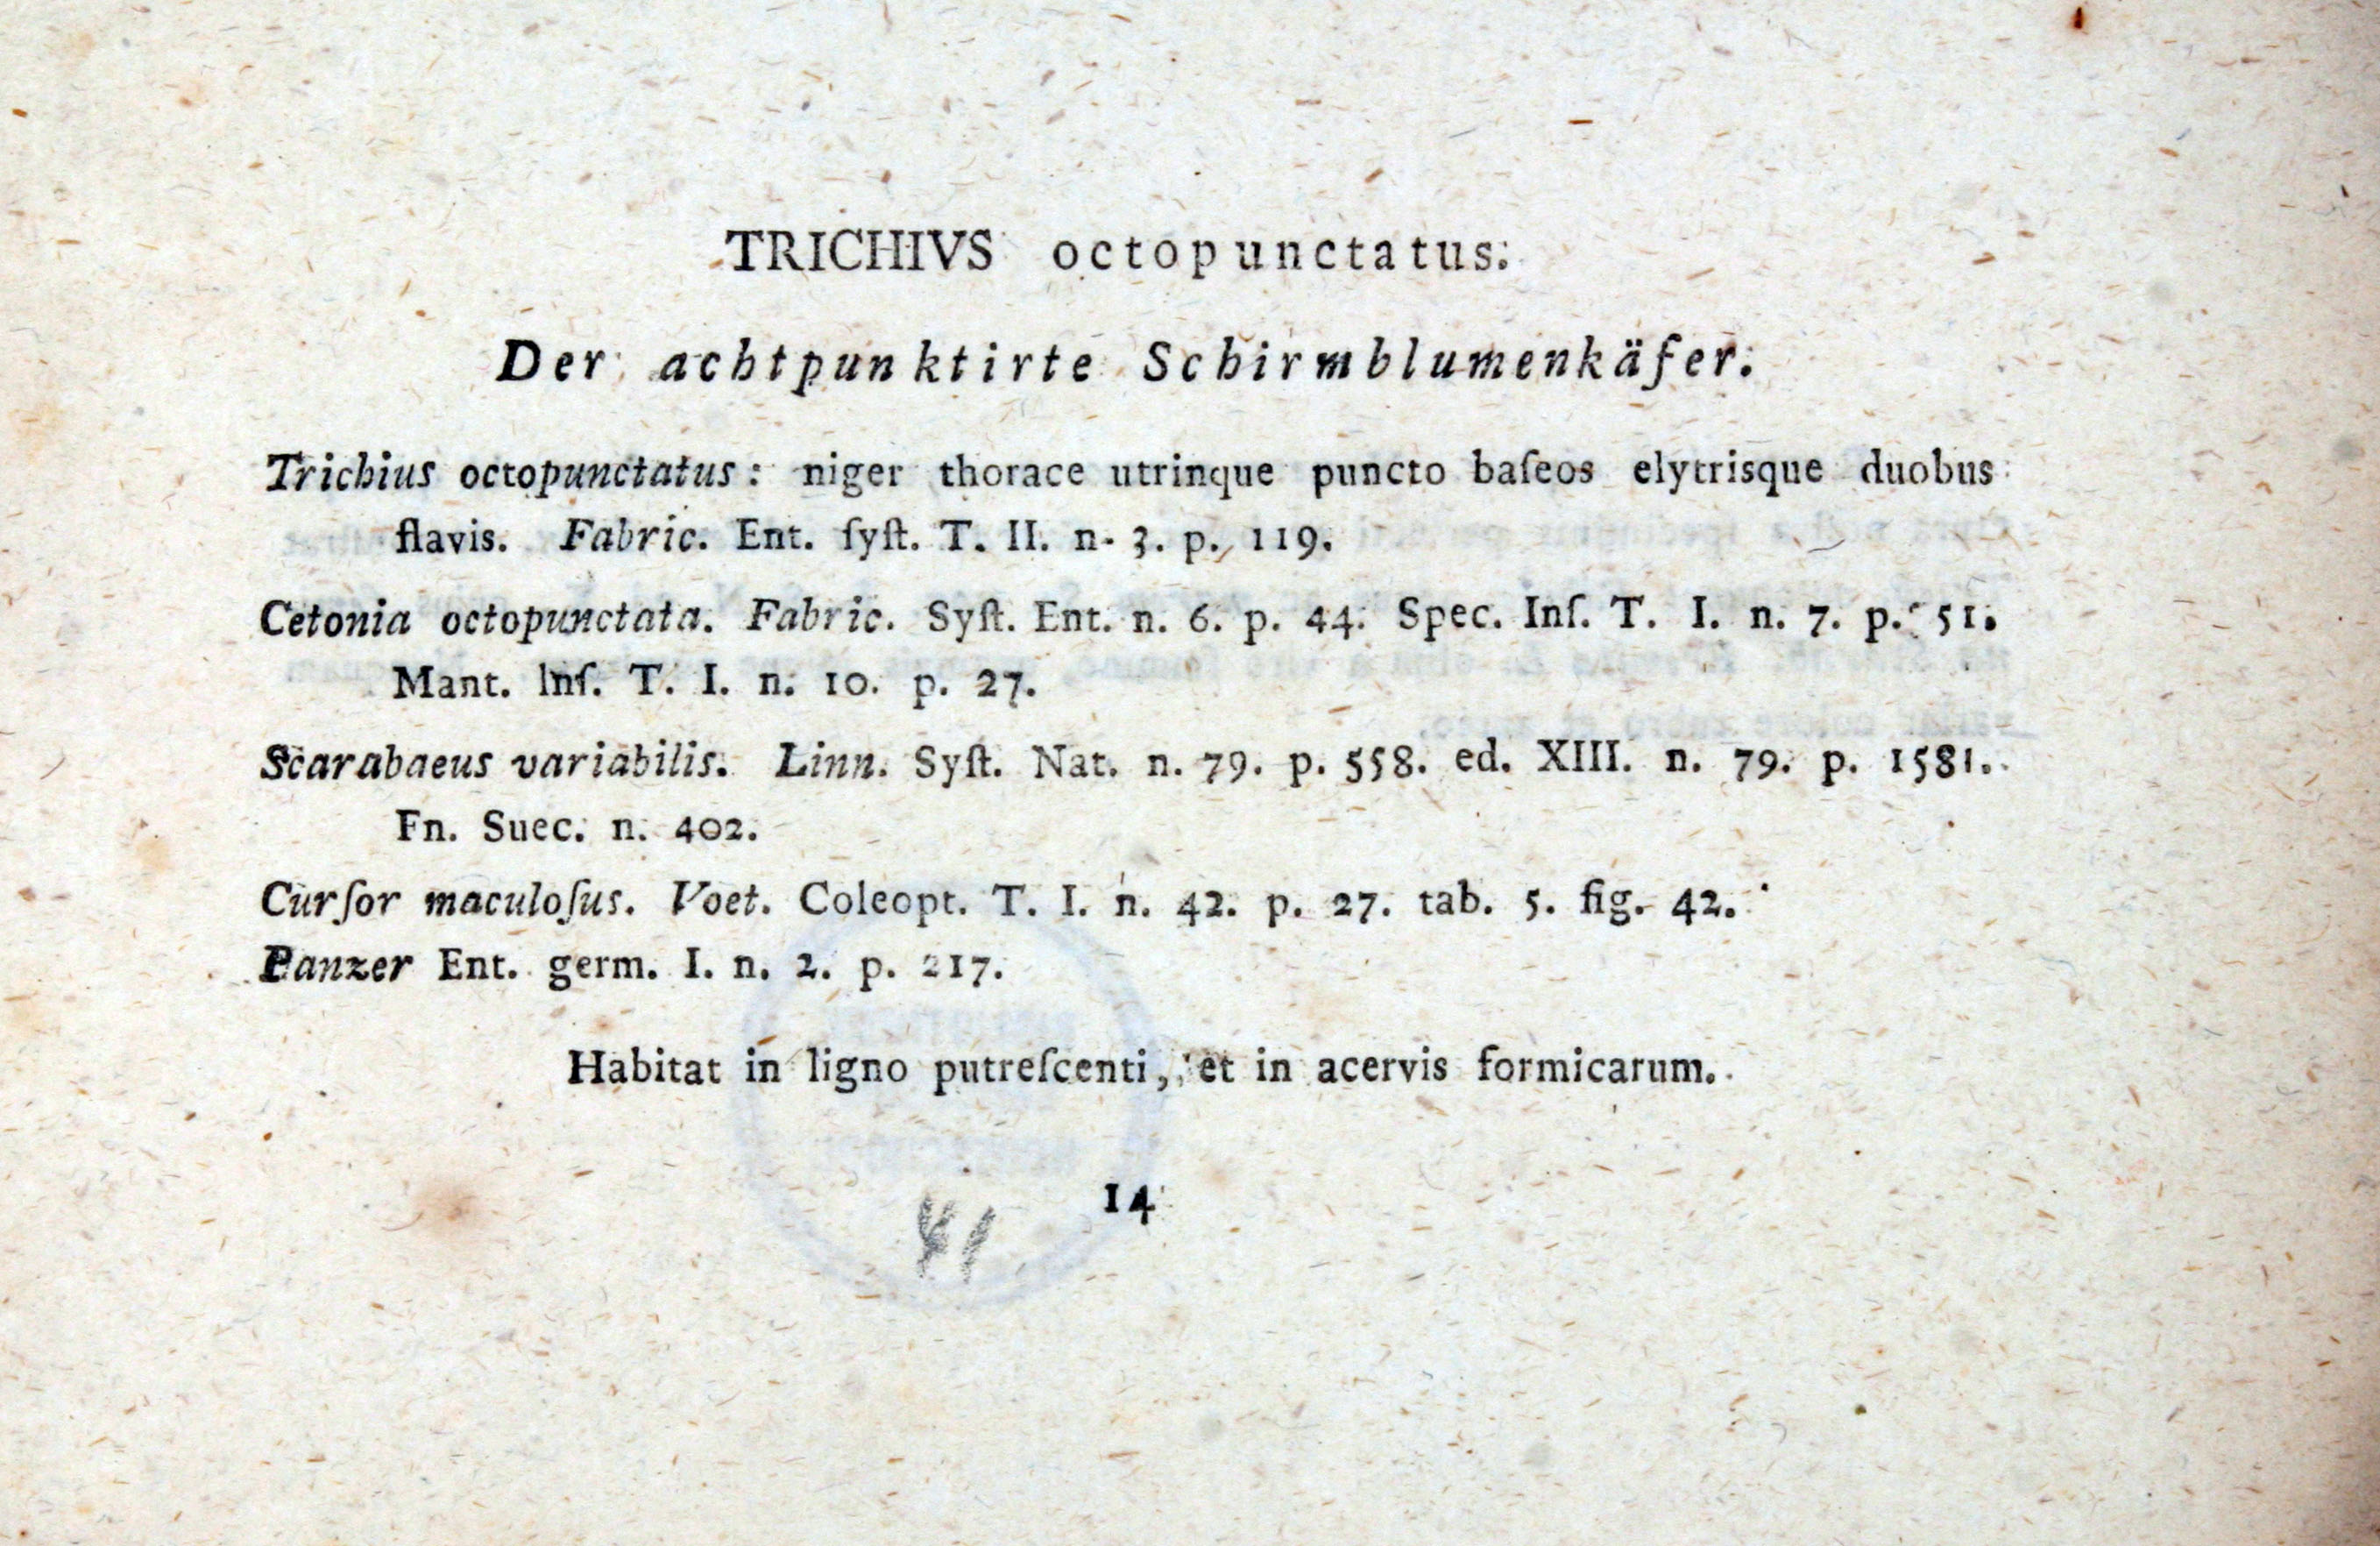 TRICHIVS octopunctatus.
Der achtpunktirte Schirmblumenkäfer.
Trichius octopunctatus: niger thorace utrinque puncto baſeos elytrisque duobus
flavis. Fabric. Ent. ſyſt. T. II. n. 3. p. 119.
Cetonia octopunctata. Fabric. Syſt. Ent. n. 6. p. 44. Spec. Inſ. T. I. n. 7. p. 51.
Mant. Inſ. T. I. n. 10. p. 27.
Scarabaeus variabilis. Linn. Syſt. Nat. n. 79. p. 558. ed. XIII. n. 79. p. 1581.
Fn. Suec. n. 402.
Curſor maculoſus. Voet. Coleopt. T. I. n. 42. p. 27. tab. 5. fig. 42.
Panzer Ent. germ. I. n. 2. p. 217.
Habitat in ligno putreſcenti, et in acervis formicarum.
14